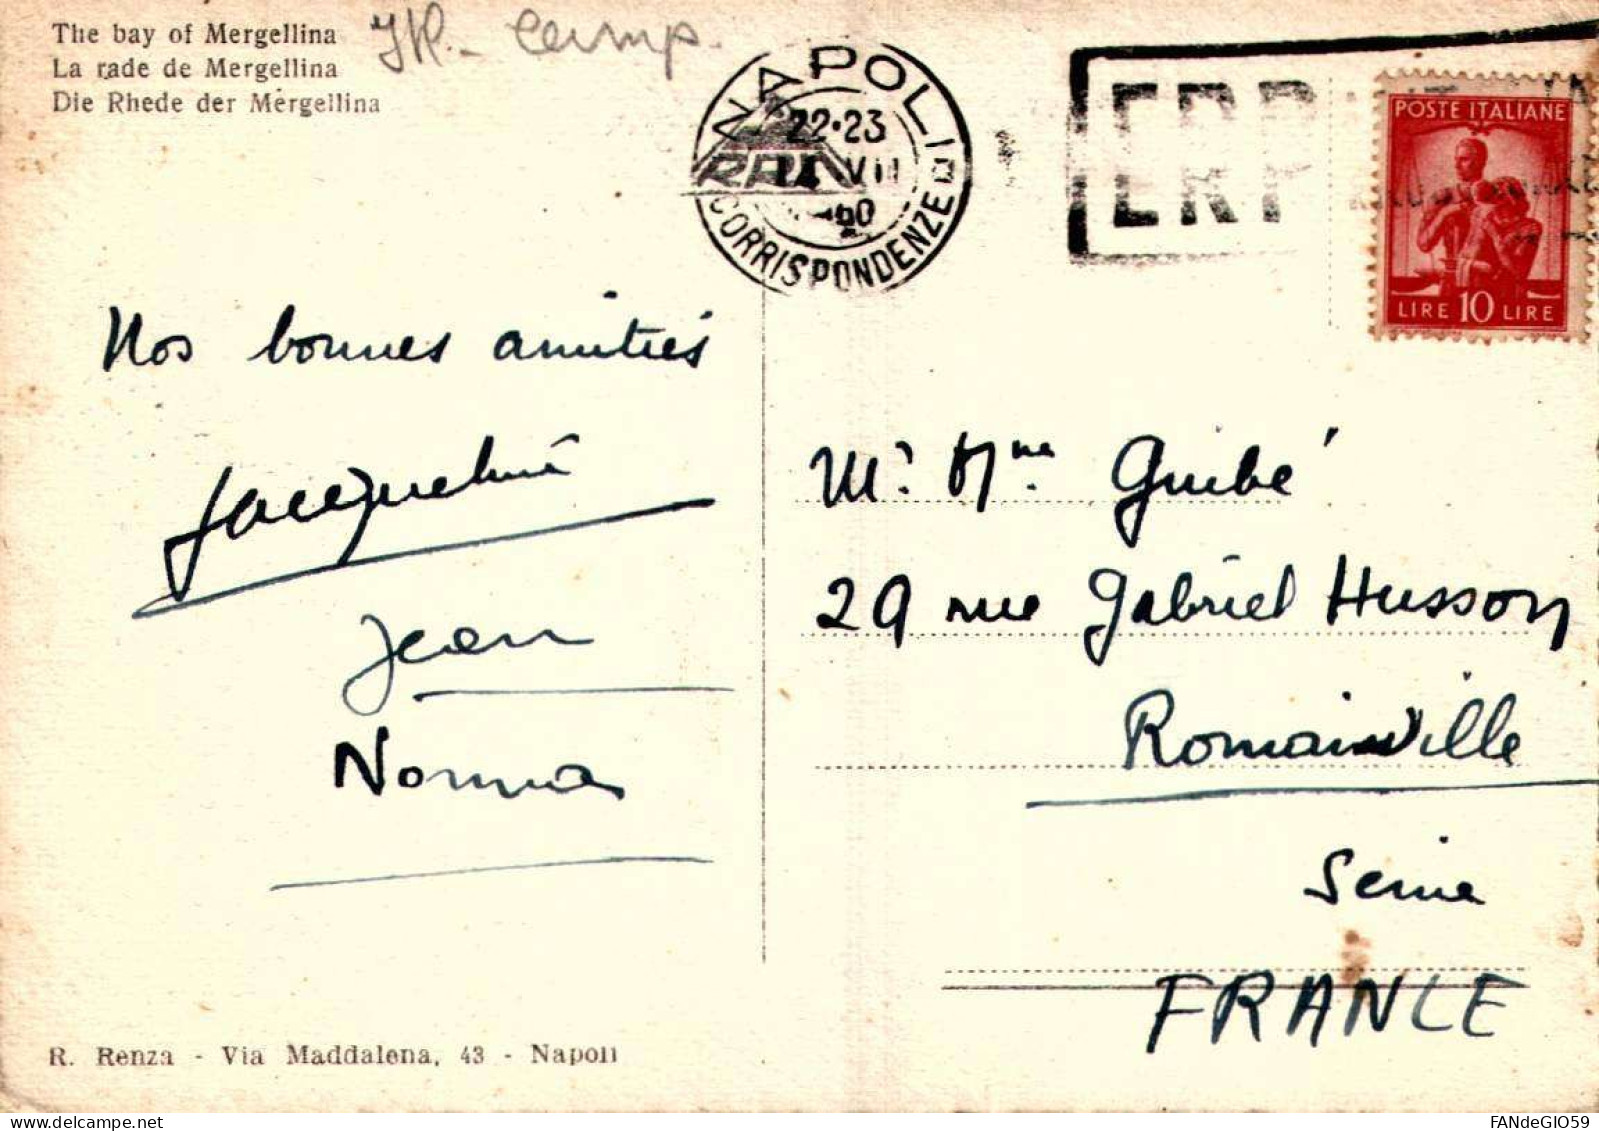 The bay of Mergellina
La rade de Mergellina
Die Rhede der Mergellina
NAPOLI
22-23
CORRISPONDENZE
ERP
POSTE ITALIANE
LIRE 10 LIRE
Nos bonnes amitiés
Jacqueline
Jean
Norma
Mr. Mme. Guibé
29 rue Gabriel Husson
Romainville
Seine
FRANCE
R. Renza - Via Maddalena, 43 - Napoli
FANdeGIO59